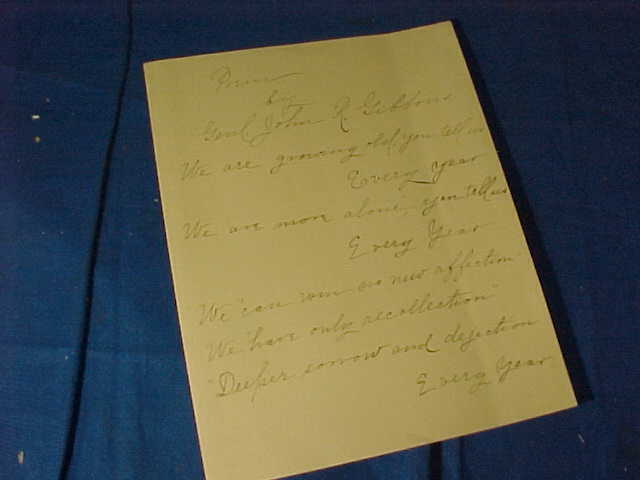 Poem
by
Genl John R Gibbons
We are growing old you tell us
Every year
We are more alone, you tell us
Every Year
We "can win no new affection"
We "have only recollection"
"Deeper sorrow and dejection
Every year